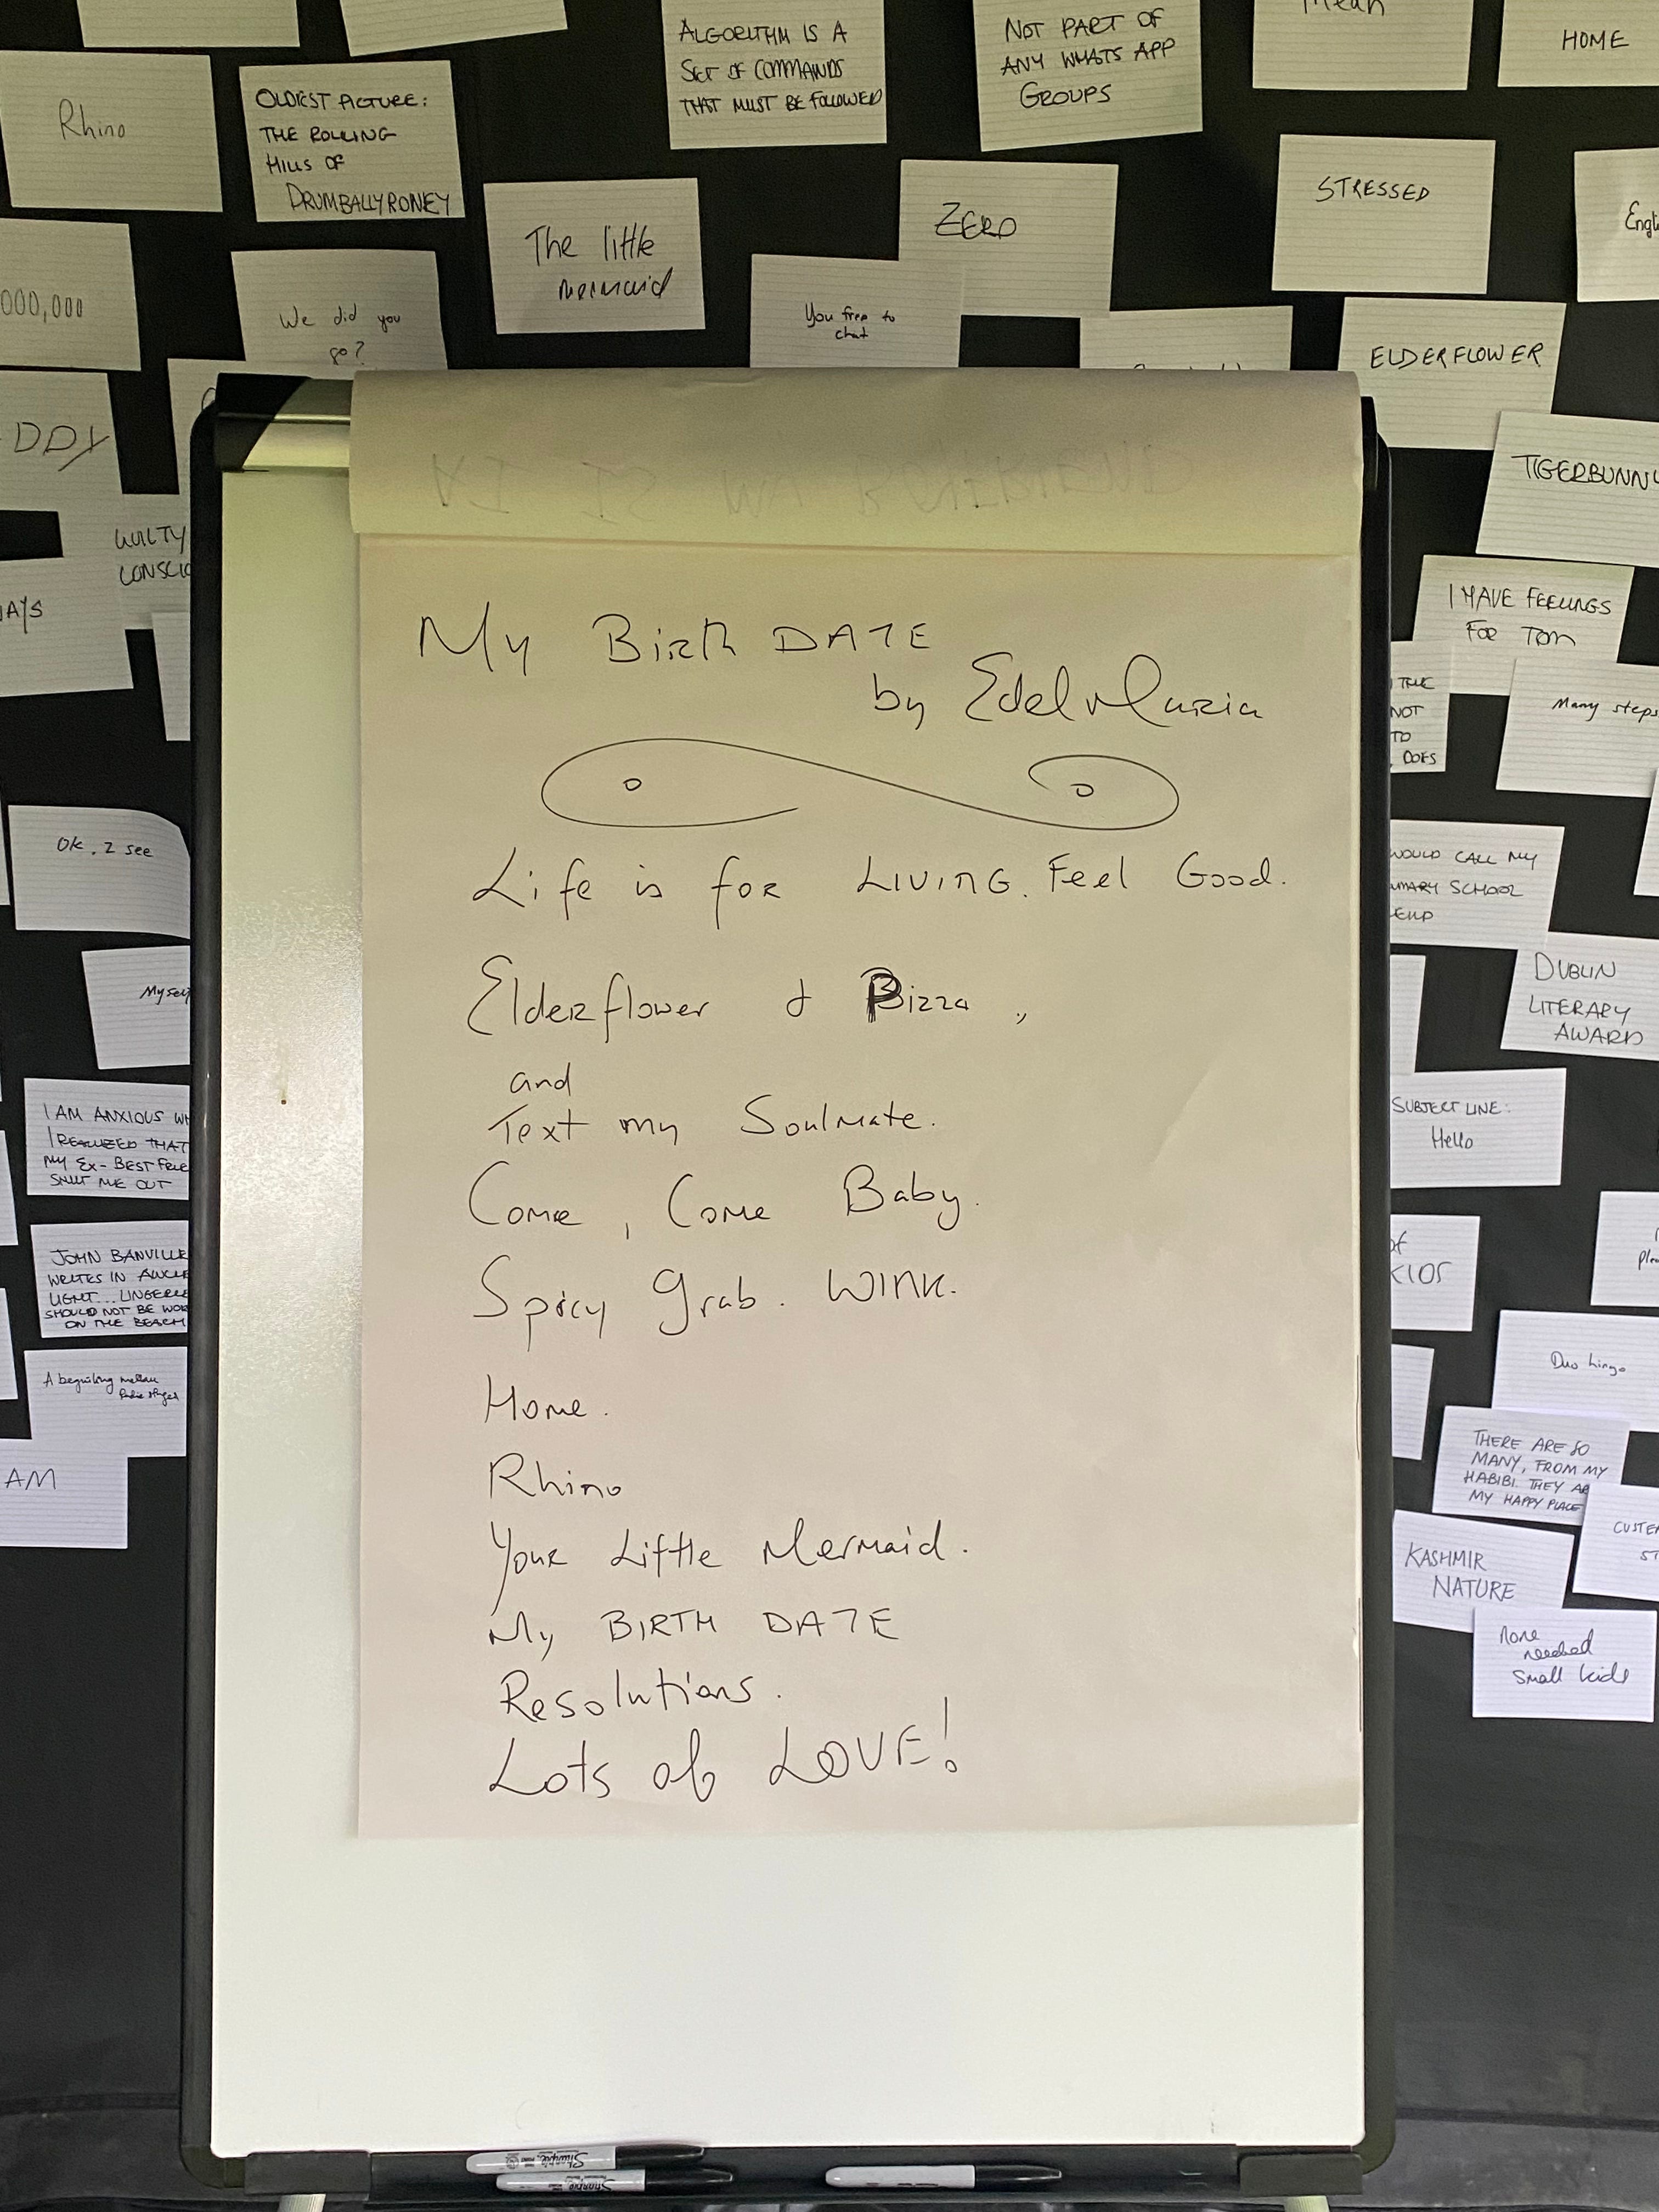 Mean
HOME
ALGORITHM IS A
SET OF COMMANDS
THAT MUST BE FOLLOWED
NOT PART OF
ANY WHATS APP
GROUPS
Rhino
OLDEST PICTURE:
THE ROLLING
HILLS OF
DRUMBALLYRONEY
The little
mermaid
ZERO
STRESSED
Engl
000,000
We did you
go?
You free to
chat
ELDERFLOWER
DDY
TIGERBUNNY
GUILTY
CONSCIO
AYS
I HAVE FEELINGS
FOR TOM
THE
NOT
TO
DOES
Many steps
My Birth DATE
by Edel Maria
Life is for LIVING. Feel Good.
Elderflower & Pizza,
and
Text my Soulmate.
Come, Come Baby.
Spicy Grab. WINK.
Home.
Rhino
Your Little Mermaid.
My BIRTH DATE
Resolutions.
Lots of LOVE!
OK, I see
Myself
I AM ANXIOUS WH
I REALIZED THAT
MY EX-BEST FRIE
SHUT ME OUT
JOHN BANVILLE
WRITES IN
LIGHT... LINGERIE
SHOULD NOT BE WOR
ON THE BEACH
A beguiling
AM
WOULD CALL MY
SCHOOL
DUBLIN
LITERARY
AWARD
SUBJECT LINE:
Hello
of
Plea
Duo Lingo
THERE ARE SO
MANY, FROM MY
HABIBI. THEY AR
MY HAPPY PLACE
CUSTE
ST
KASHMIR
NATURE
None
needed
small kids
Sharpie
Sharpie